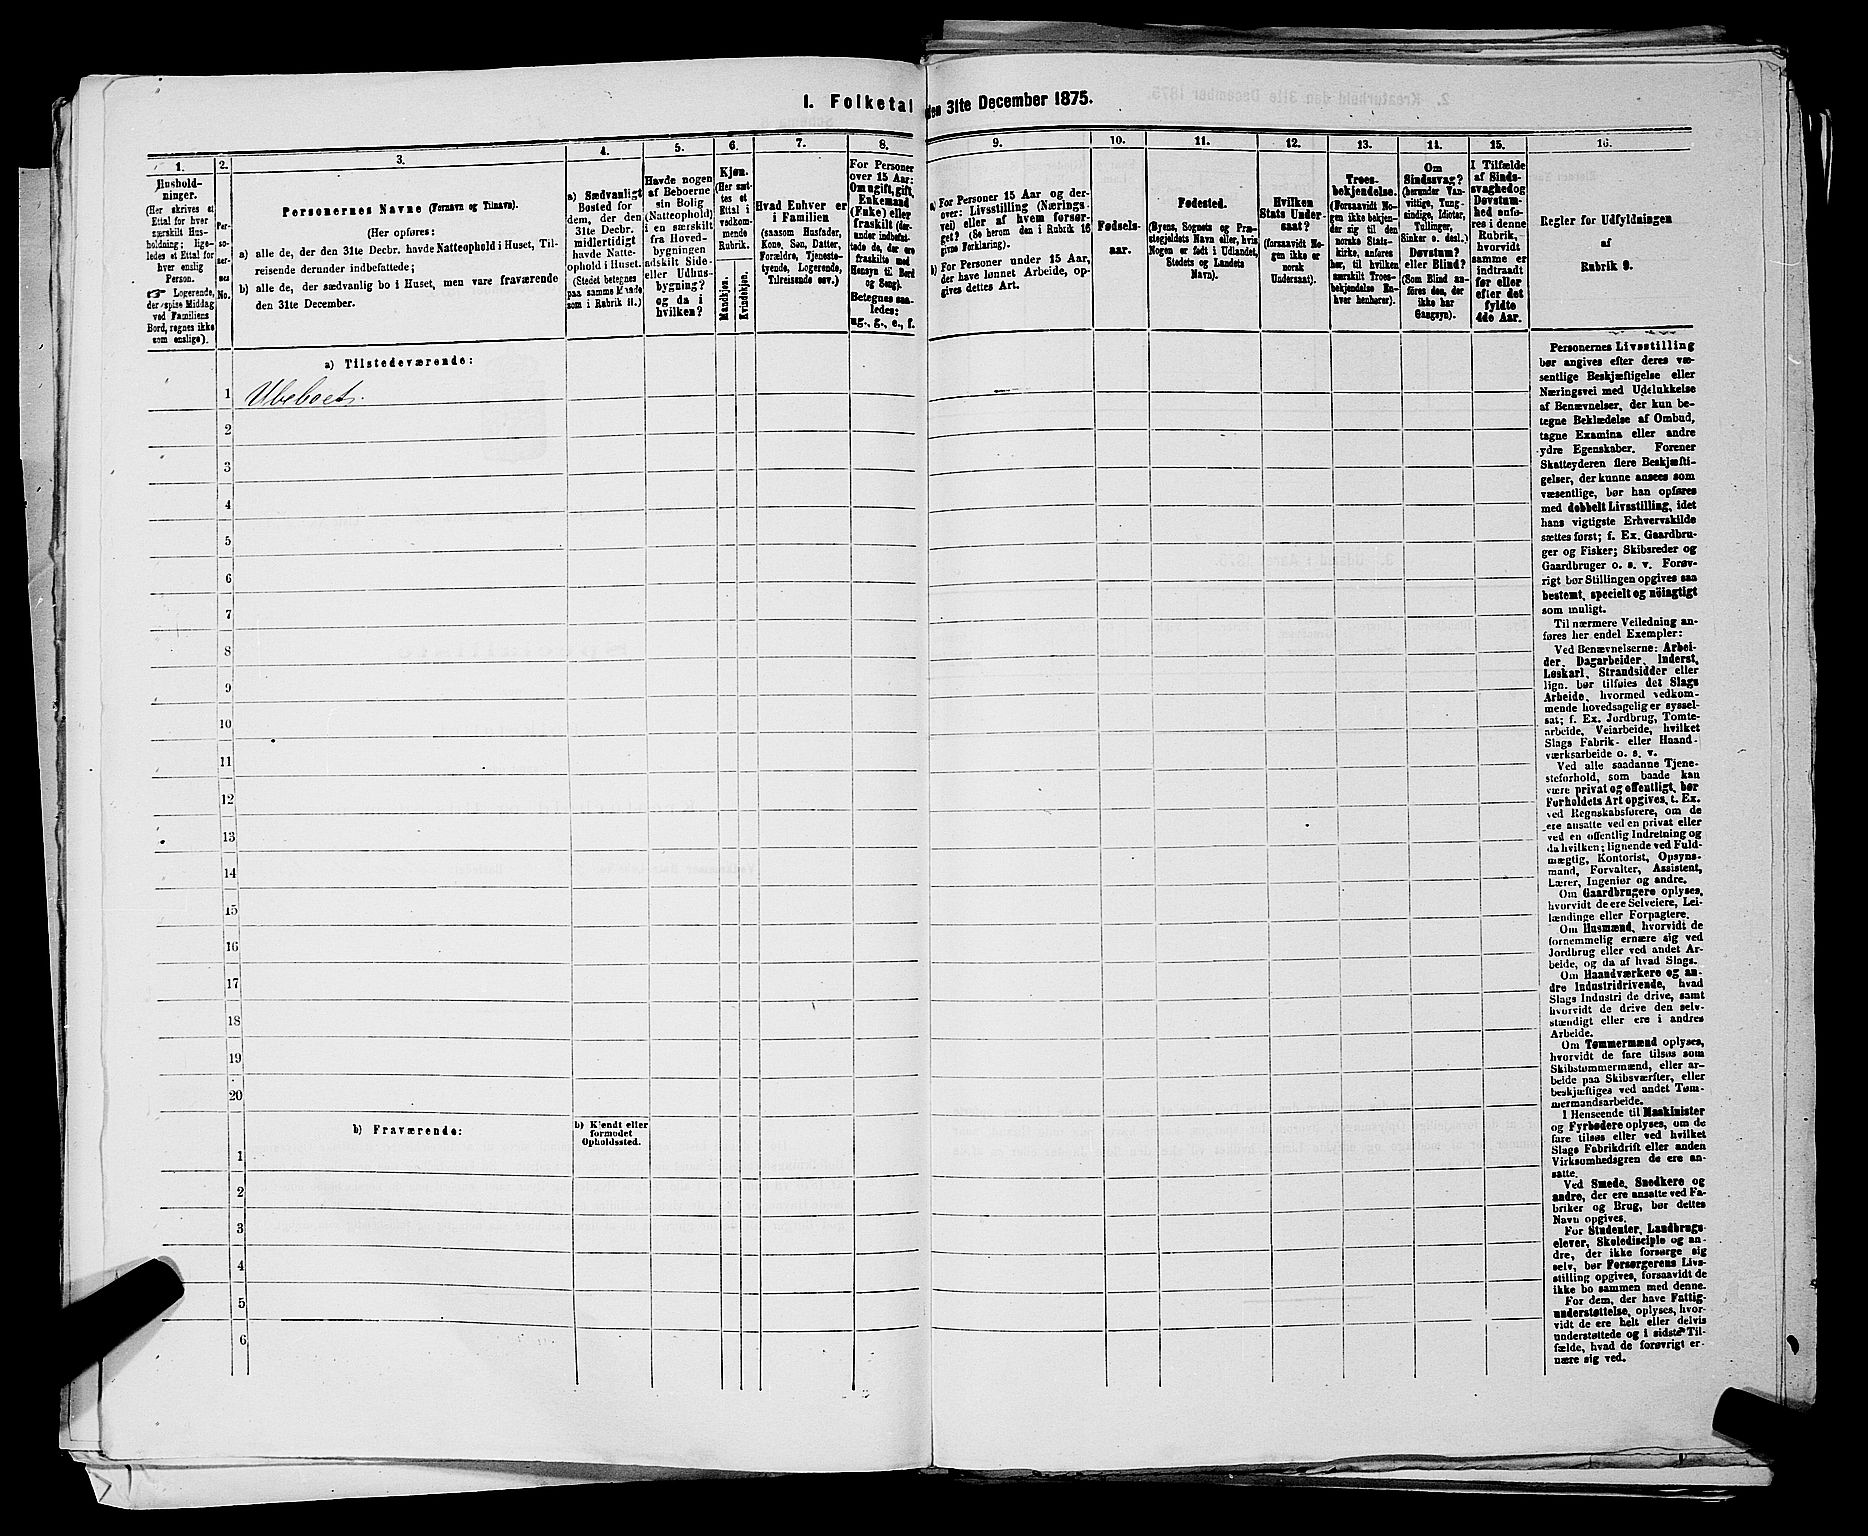 I. Folketal den 31te December 1875.
1.
Hushold-
ninger.
(Her skrives et
Ettal for hver
særskilt Hus-
holdning; lige-
ledes et Ettal for
hver enslig
Person.
☞ Logerende,
der spise Middag
ved Familiens
Bord, regnes ikke
som enslige).
2.
Per-
so-
ner-
nes
No.
3.
Personernes Navne (Fornavn og Tilnavn).
(Her opføres:
a) alle de, der den 31te Decbr. havde Natteophold i Huset, Til-
reisende derunder indbefattede;
b) alle de, der sædvanlig bo i Huset, men vare fraværende
den 31te December.
4.
a) Sædvanligt
Bosted for
dem, der den
31te Decbr.
midlertidigt
havde Natte-
ophold i Huset.
(Stedet betegnes
paa samme Maade
som i Rubrik 11.)
5.
Havde nogen
af Beboerne
sin Bolig
(Natteophold)
i en særskilt
fra Hoved-
bygningen
adskilt Side-
eller Udhus-
bygning?
og da i
hvilken?
6.
Kjøn.
(Her sæt-
tes et
Ettal i
vedkom-
mende
Rubrik.
Mandkjøn.
Kvindekjøn.
7.
Hvad Enhver er
i Familien
(saasom Husfader,
Kone, Søn, Datter,
Forældre, Tjeneste-
tyende, Logerende,
Tilreisende osv.)
8.
For Personer
over 15 Aar:
Om ugift, gift,
Enkemand
(Enke) eller
fraskilt (der-
under indbefat-
tede de, der ere
fraskilte med
Hensyn til Bord
og Seng).
Betegnes saa-
ledes:
ug., g., e., f.
9.
a) For Personer 15 Aar og der-
over: Livsstilling (Nærings-
vei) eller af hvem forsør-
get? (Se herom den i Rubrik 16
givne Forklaring).
b) For Personer under 15 Aar,
der have lønnet Arbeide, op-
gives dettes Art.
10.
Fødsels-
aar.
11.
Fødested.
(Byens, Sognets og Præ-
stegjeldets Navn eller, hvis
Nogen er født i Udlandet,
Stedets og Landets
Navn).
12.
Hvilken
Stats Under-
saat?
(forsaavidt No-
gen ikke er
norsk
Undersaat).
13.
Troes-
bekjendelse.
(Forsaavidt No-
gen ikke bekjen-
der sig til den
norske Stats-
kirke, anføres
her, til hvilken
særskilt Troes-
bekjendelse En-
hver henhører).
14.
Om
Sindssvag?
(herunder Van-
vittige, Tung-
sindige, Idioter,
Tullinger,
Sinker o. desl.)
Døvstum?
eller Blind?
(Som Blind an-
føres den, der
ikke har
Gangsyn).
15.
I Tilfælde
af Sinds-
svaghed og
Døvstum-
hed anfø-
res i denne
Rubrik,
hvorvidt
samme er
indtraadt
før eller
efter det
fyldte
4de Aar.
16.
Regler for Udfyldningen
af
Rubrik 9.
a) Tilstedeværende:
1 Ubeboet.
2
3
4
5
6
7
8
9
10
11
12
13
14
15
16
17
18
19
20
b) Fraværende:
b) Kjendt eller
formodet
Opholdssted.
1
2
3
4
5
6
Personernes Livsstilling
bør angives efter deres væ-
sentlige Beskjæftigelse eller
Næringsvei med Udelukkelse
af Benævnelser, der kun be-
tegne Beklædelse af Ombud,
tagne Examina eller andre
ydre Egenskaber. Forener
Skatteyderen flere Beskjæfti-
gelser, der kunne ansees som
væsentlige, bør han opføres
med dobbelt Livsstilling, idet
hans vigtigste Erhvervskilde
sættes først; f. Ex. Gaardbru-
ger og Fisker; Skibsreder og
Gaardbruger o. s. v. Forøv-
rigt bør Stillingen opgives saa
bestemt, specielt og nöiagtigt
som muligt.
Til nærmere Veiledning an-
føres her endel Exempler:
Ved Benævnelserne: Arbei-
der, Dagarbeider, Inderst,
Løskarl, Strandsidder eller
lign. bør tilføies det Slags
Arbeide, hvormed vedkom-
mende hovedsagelig er syssel-
sat; f. Ex. Jordbrug, Tomte-
arbeide, Veiarbeide, hvilket
Slags Fabrik- eller Haand-
værksarbeide o. s. v.
Ved alle saadanne Tjene-
steforhold, som baade kan
være privat og offentligt, bør
Forholdets Art opgives, t. Ex.
ved Regnskabsførere, om de
ere ansatte ved en privat eller
ved en offentlig Indretning og
da hvilken; lignende ved Fuld-
mægtig, Kontorist, Opsyns-
mand, Forvalter, Assistent,
Lærer, Ingeniør og andre.
Om Gaardbrugere oplyses,
hvorvidt de ere Selveiere, Lei-
lændinge eller Forpagtere.
Om Husmænd, hvorvidt de
fornemmelig ernære sig ved
Jordbrug eller ved andet Ar-
beide, og da af hvad Slags.
Om Haandværkere og an-
dre Industridrivende, hvad
Slags Industri de drive, samt
hvorvidt de drive den selv-
stændigt eller ere i andres
Arbeide.
Om Tømmermænd oplyses,
hvorvidt de fare tilsøs som
Skibstømmermænd, eller ar-
beide paa Skibsværfter, eller
beskjæftiges ved andet Tøm-
mermandsarbeide.
I Henseende til Maskinister
og Fyrbødere oplyses, om de
fare tilsøs eller ved hvilket
Slags Fabrikdrift eller anden
Virksomhedsgren de ere an-
satte.
Ved Smede, Snedkere og
andre, der ere ansatte ved Fa-
briker og Brug, bør dettes
Navn opgives.
For Studenter, Landbrugs-
elever, Skoledisciple og an-
dre, der ikke forsørge sig
selv, bør Forsørgerens Livs-
stilling opgives, forsaavidt de
ikke bo sammen med denne.
For dem, der have Fattig-
understøttelse, oplyses, hvor-
vidt de ere helt eller delvis
understøttede og i sidste Til-
fælde, hvad de forøvrigt er-
nære sig ved.